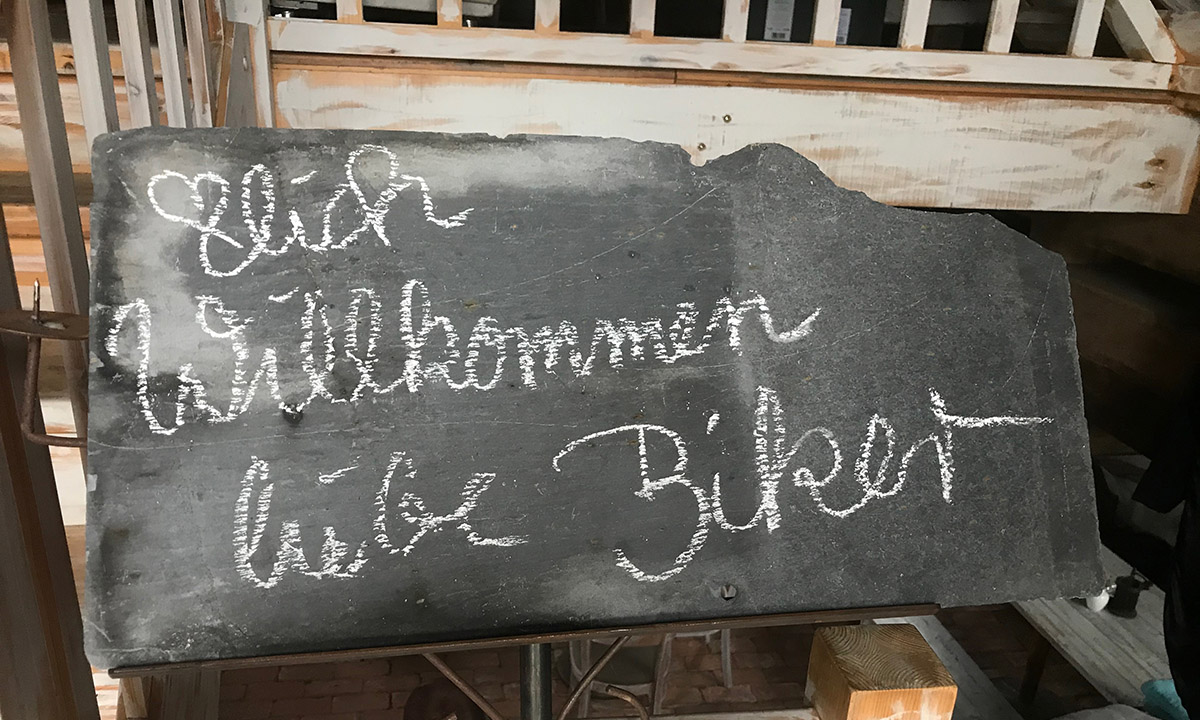 ♡lich
Willkommen
liebe Biker